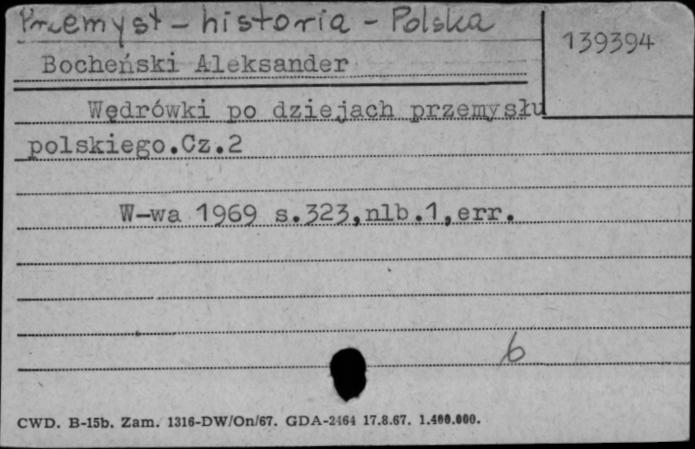 Przemysł - historia - Polska
139394
Bocheński Aleksander
Wędrówki po dziejach przemysłu
polskiego.Cz.2
W-wa 1969 s.323,nlb.1,err.
6
CWD. B-15b. Zam. 1316-DW/On/67. GDA-2464 17.8.67. 1.400.000.